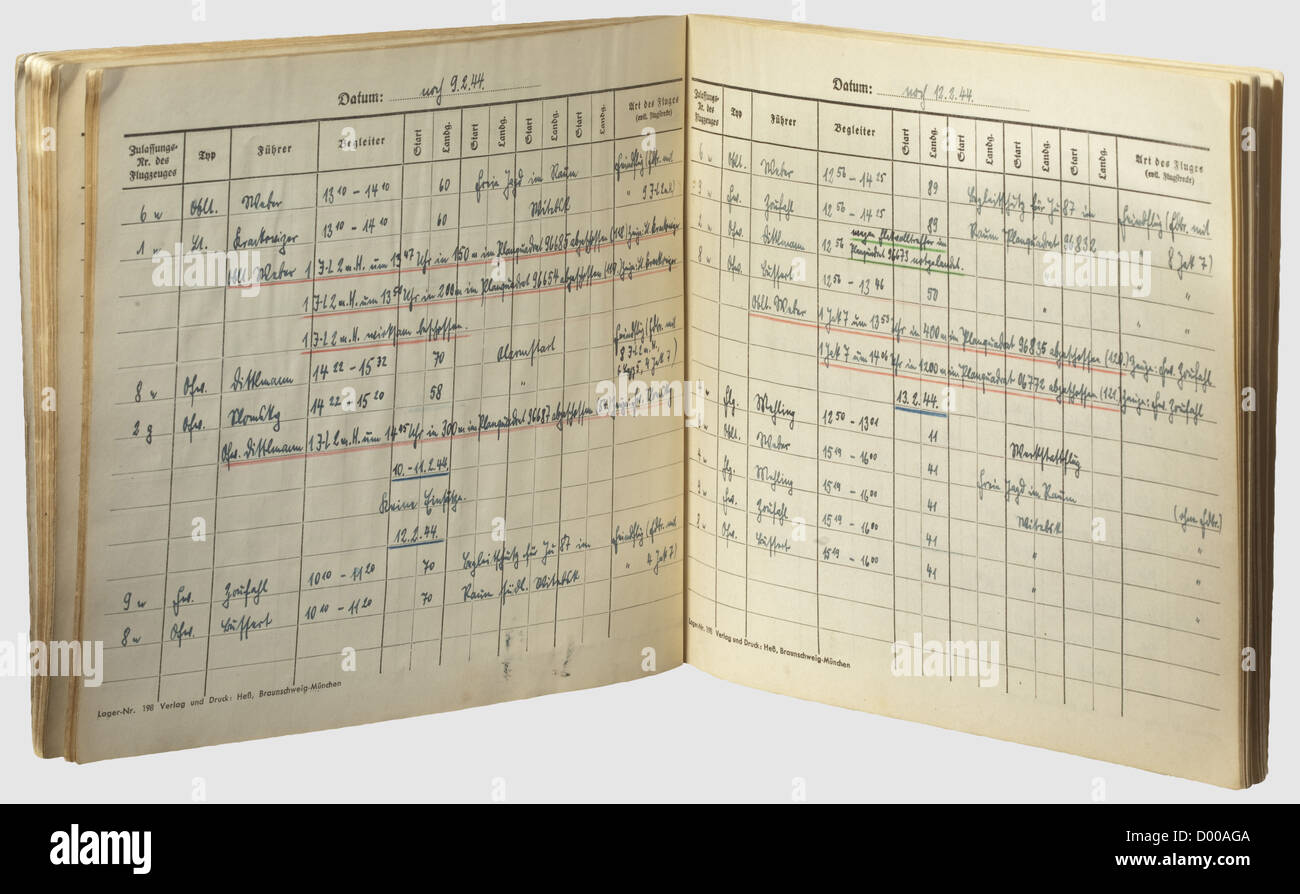 Datum: noch 9.2.44.
Zulassungs-Nr. des Flugzeuges Typ Führer Begleiter Start Landg. Start Landg. Start Landg. Start Landg. Art des Fluges (evtl. Flugstrecke)
6 w Oblt. Weber 13 10 – 14 10 60 Freie Jagd im Raum Feindflug (Fdber. mit
1 w Lt. 13 10 – 14 10 60 Witebsk " 9 J-L2 m.H.)
Oblt. Weber 1 J-L2 m.H. um 13 47 Uhr in 150 m im Planquadrat 96685 abgeschossen (118.) Zeuge: Lt.
1 J-L2 m.H. um 13 54 Uhr in 200 m im Planquadrat 96654 abgeschossen (119.) Zeuge: Lt.
1 J-L2 m.H. wirksam beschossen.
8 w Ofw. Dittlmann 14 22 – 15 32 70 Alarmstart Feindflug (Fdber. mit
8 J-L2 m.H.
2 g Ofw. 14 22 – 15 20 58 " 4 Jak 7)
Ofw. Dittlmann 1 J-L2 m.H. um 14 Uhr in 300 m im Planquadrat 96687 abgeschossen
10. – 11.2.44.
Keine Einsätze.
12.2.44.
9 w Fw. Zoufahl 10 10 – 11 20 70 Begleitschutz für Ju 87 im Feindflug (Fdber. mit
8 w Ofw. Büssert 10 10 – 11 20 70 Raum südl. Witebsk " 4 Jak 7)
Lager-Nr. 198 Verlag und Druck: Heß, Braunschweig-München
Datum: noch 12.2.44.
Zulassungs-Nr. des Flugzeuges Typ Führer Begleiter Start Landg. Start Landg. Start Landg. Start Landg. Art des Fluges (evtl. Flugstrecke)
6 w Oblt. Weber 12 56 – 14 25 89 Begleitschutz für Ju 87 im Feindflug (Fdber. mit
9 w Fw. Zoufahl 12 56 – 14 25 89 Raum Planquadrat 96832 8 Jak 7)
Ofw. Dittlmann 12 56 wegen Flakvolltreffer im Planquadrat 96673 notgelandet. "
8 w Ofw. Büssert 12 56 – 13 46 50 " "
Oblt. Weber 1 Jak 7 um 13 53 Uhr in 400 m im Planquadrat 96835 abgeschossen (120.) Zeuge: Fw. Zoufahl
1 Jak 7 um 14 Uhr in 1200 m im Planquadrat 06772 abgeschossen (121.) Zeuge: Fw. Zoufahl
13.2.44.
Flg. Mehling 12 50 – 13 01 11 Werkstattflug
Oblt. Weber 15 19 – 16 00 41 Freie Jagd im Raum (ohne Fdber.)
4 w Flg. Mehling 15 19 – 16 00 41 Witebsk "
Fw. Zoufahl 15 19 – 16 00 41 " "
8 w Ofw. Büssert 15 19 – 16 00 41 " "
Lager-Nr. 198 Verlag und Druck: Heß, Braunschweig-München
alamy
Image ID: D00AGA
www.alamy.com